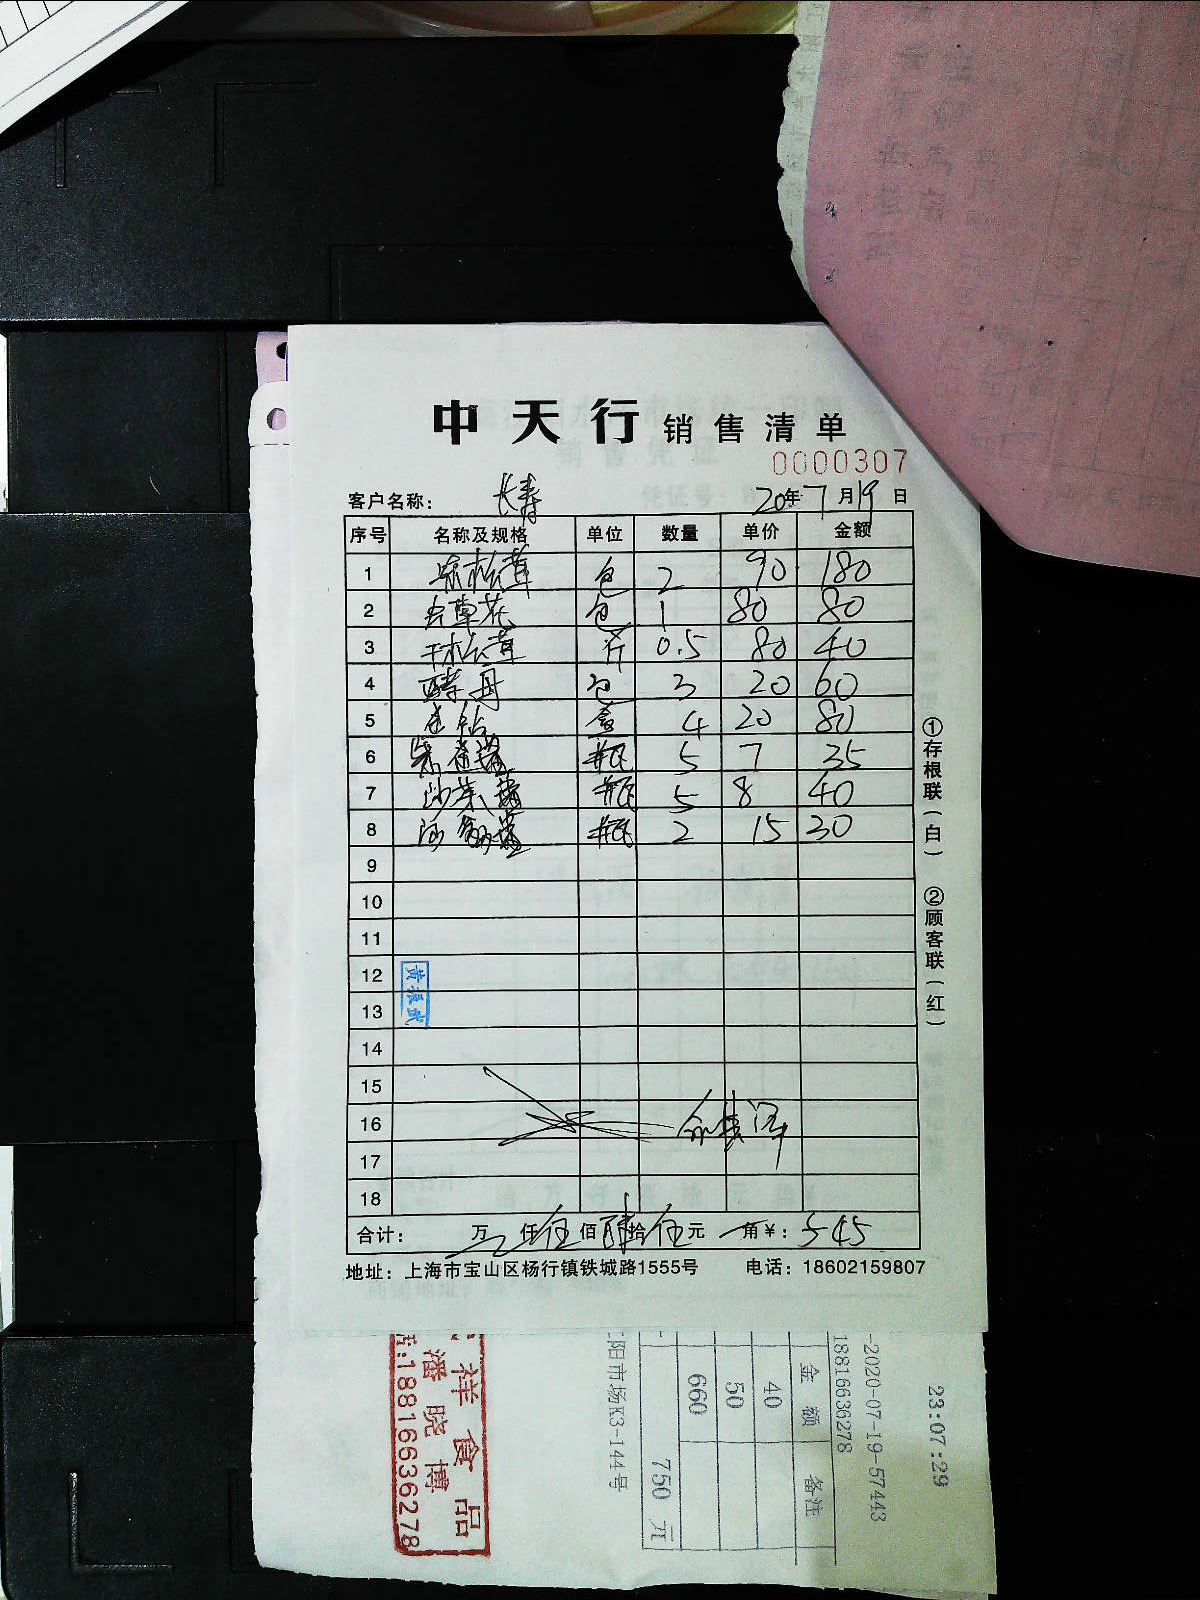 中天行 销售清单
0000307
客户名称： 长寿 20年7月19日
序号 名称及规格 单位 数量 单价 金额
1 冻松茸 包 2 90 180
2 虫草花 包 1 80 80
3 干松茸 斤 0.5 80 40
4 酵母 包 3 20 60
5 盒 4 20 80
6 瓶 5 7 35
7 瓶 5 8 40
8 瓶 2 15 30
9
10
11
12
13
14
15
16
17
18
合计： 万 仟伍佰肆拾伍元 角￥：545
地址：上海市宝山区杨行镇铁城路1555号 电话：18602159807
①存根联（白） ②顾客联（红）
祥食品
潘晓博
:18816636278
阳市场K3-144号
金额 备注
40
50
660
750 元
-2020-07-19-57443
18816636278
23:07:29